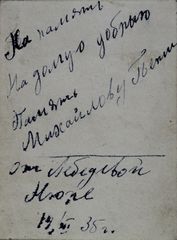 На память
На долгую добрую
Память
Михайлову Пети
от Лебедевой
Нюре
14/VI 35 г.